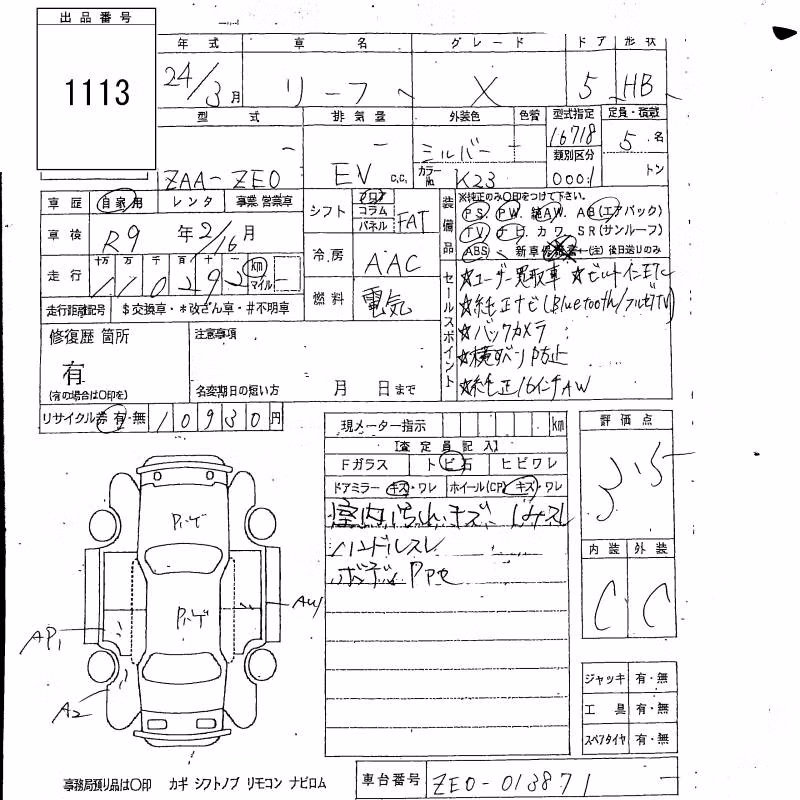 出品番号
1113
年式 車名 グレード ドア 形状
24/3月 リーフ X 5 HB
型式 排気量 外装色 色替 型式指定 定員・積載
ZAA-ZE0 EV c.c. シルバー 16718 5名
カラーNo. K23 類別区分 0001 トン
車歴 自家用 レンタ 事業 営業車
車検 R9年2/16月
走行 十万 万 千 百 十 一
110292 km マイル
走行距離記号 $交換車・*改ざん車・#不明車
シフト フロア コラム パネル FAT
冷房 AAC
燃料 電気
装備品 ※純正のみ○印をつけて下さい。
PS PW 純AW AB(エアバック)
TV ナビ カワ SR(サンルーフ)
ABS 新車保証書←(注)後日送りのみ
セールスポイント
☆ユーザー買取車 ☆ビルトインETC
☆純正ナビ(Bluetooth/フルセグTV)
☆バックカメラ
☆横すべり防止
☆純正16インチAW
修復歴 箇所
有
(有の場合は○印を)
注意事項
名変期日の短い方 月 日まで
リサイクル券 有・無 10930円
現メーター指示 km
【査定員記入】
Fガラス トビ石 ヒビワレ
ドアミラー キズ・ワレ ホイール(CP) キズ・ワレ
室内汚れ、キズ、しみ、スレ
ハンドルスレ
ボディPPセ
評価点
3.5
内装 外装
C C
ジャッキ 有・無
工具 有・無
スペアタイヤ 有・無
AP1
A2
AU1
事務局預り品は○印 カギ シフトノブ リモコン ナビロム
車台番号 ZE0-013871